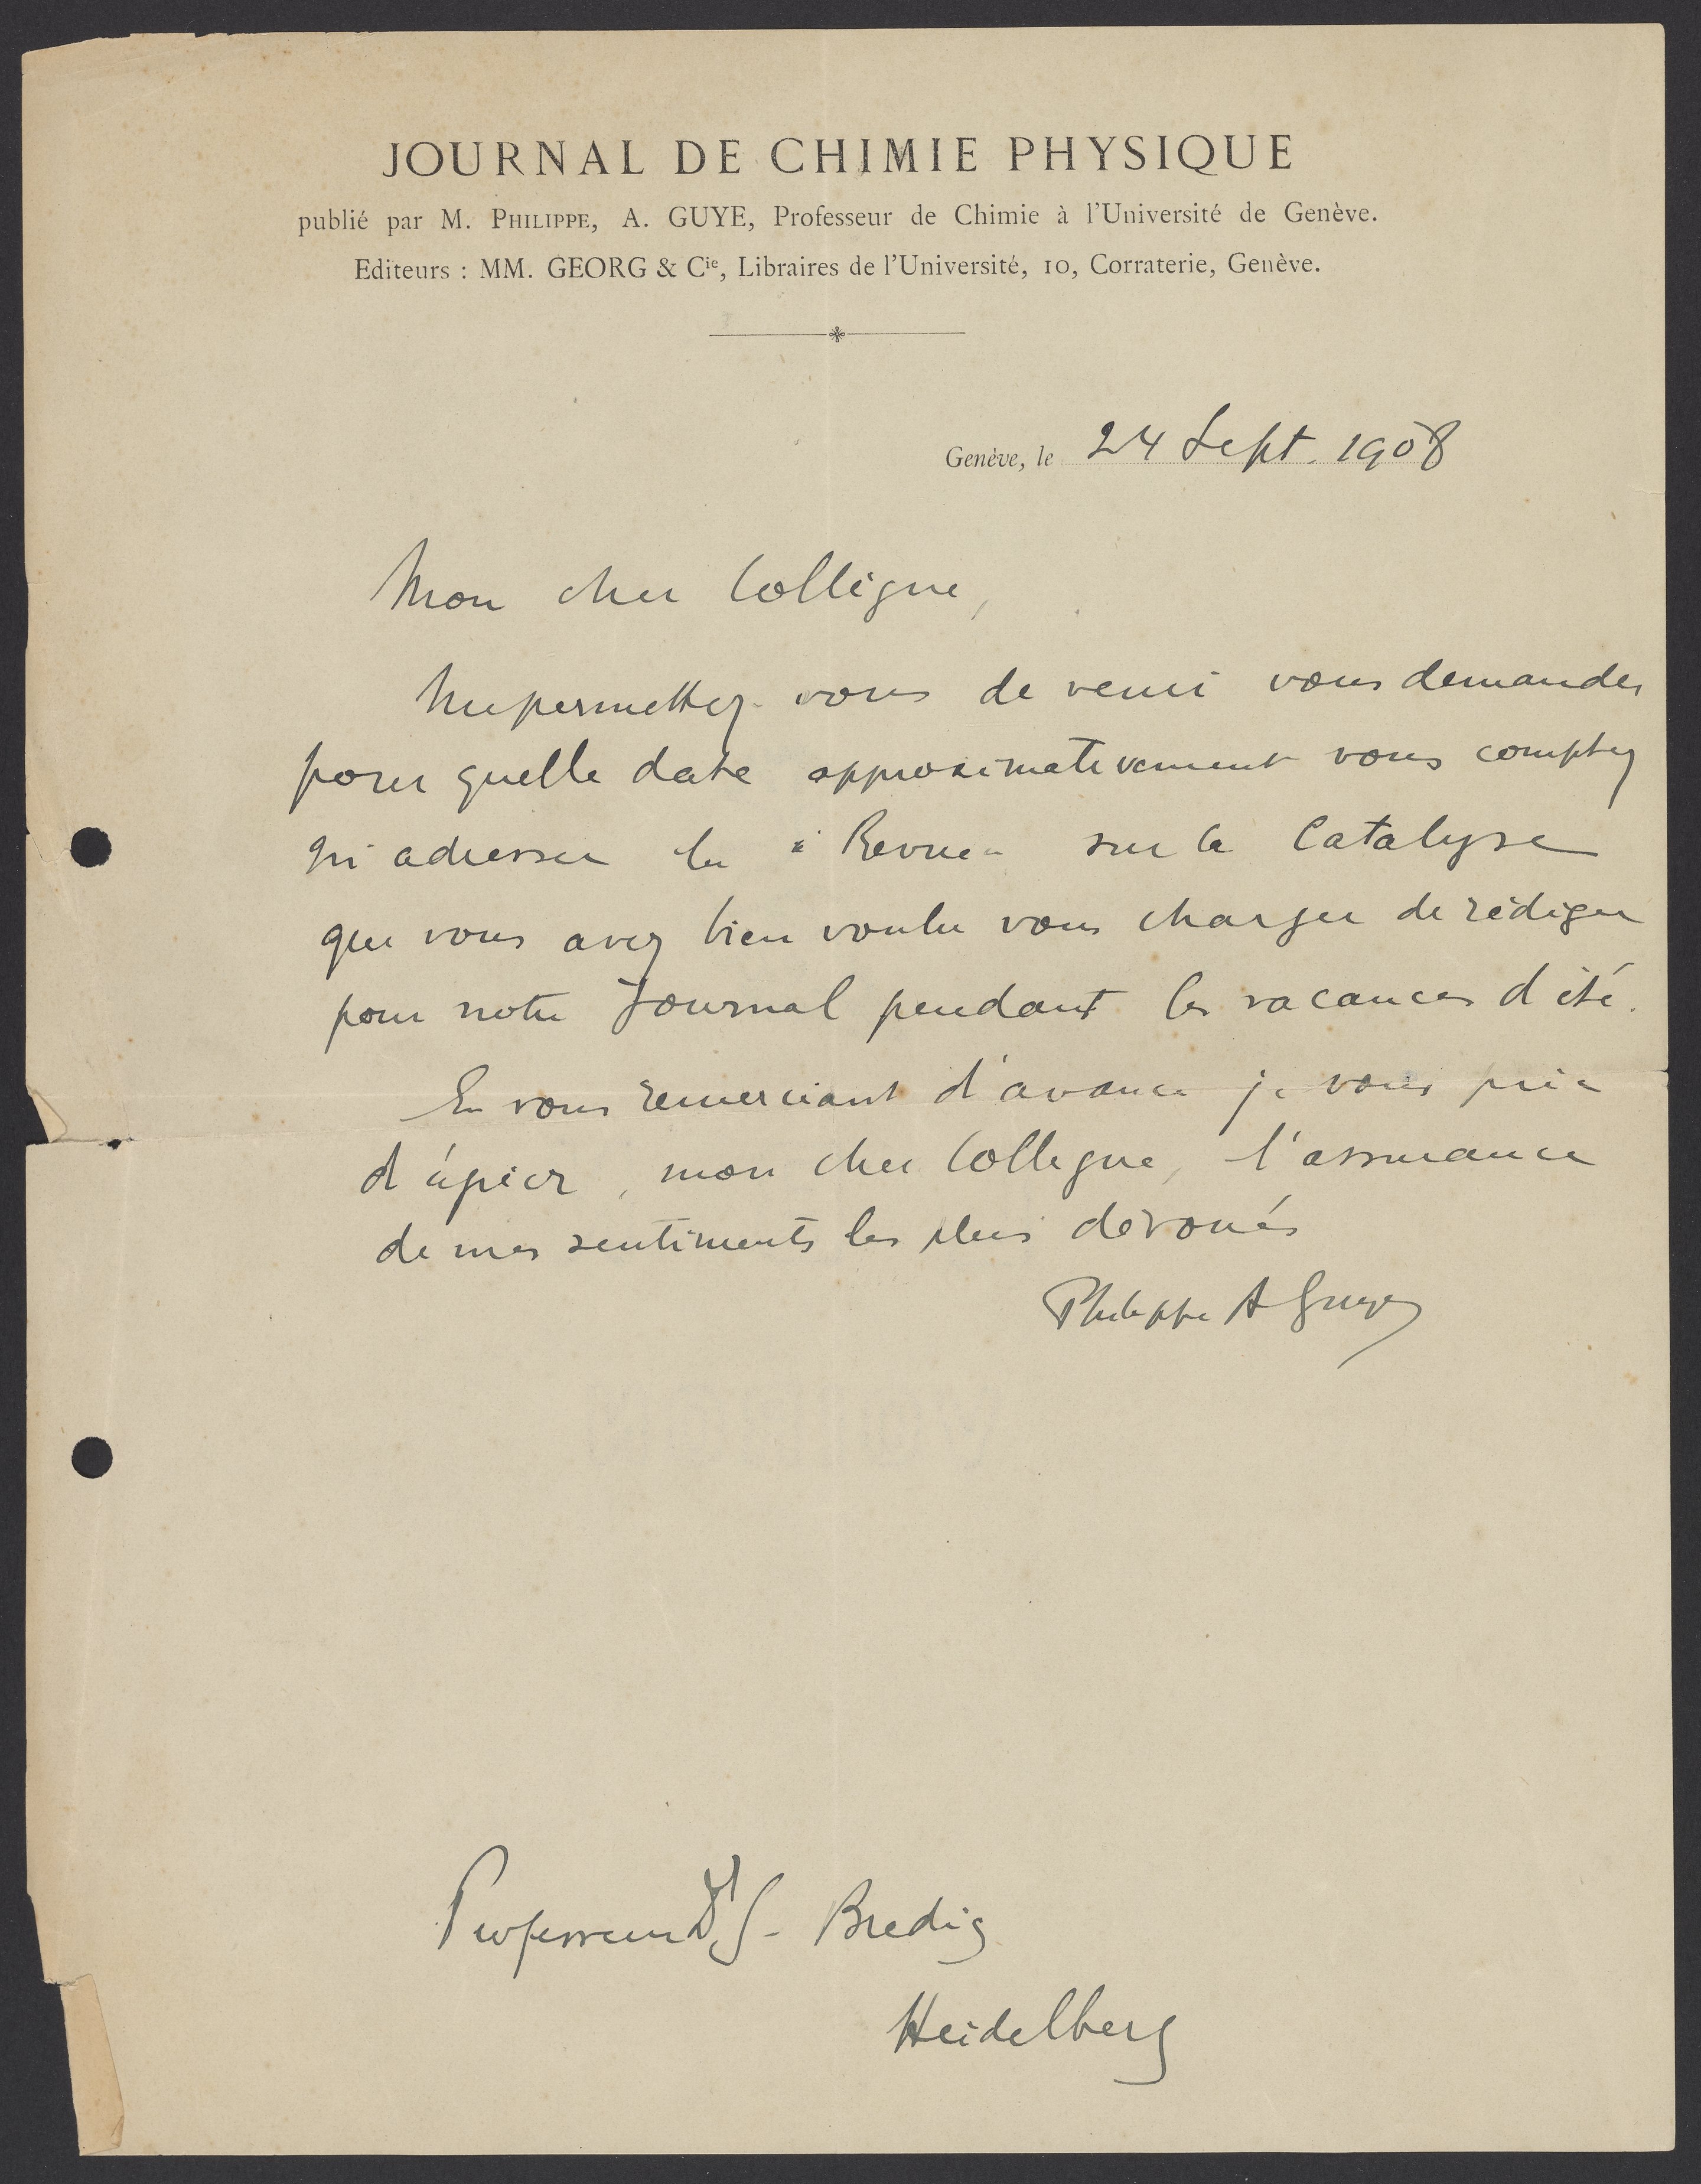 JOURNAL DE CHIMIE PHYSIQUE
publié par M. PHILIPPE, A. GUYE, Professeur de Chimie à l'Université de Genève.
Editeurs : MM. GEORG & Cie, Libraires de l'Université, 10, Corraterie, Genève.
Genève, le 24 Sept. 1908
Mon cher Collègue,
Me permettez-vous de venir vous demander
pour quelle date approximativement vous comptez
m'adresser la "Revue" sur la Catalyse
que vous avez bien voulu vous charger de rédiger
pour notre Journal pendant les vacances d'été.
En vous remerciant d'avance je vous prie
d'agréer, mon cher Collègue, l'assurance
de mes sentiments les plus dévoués
Philippe A Guye
Professeur Dr G. Bredig
Heidelberg